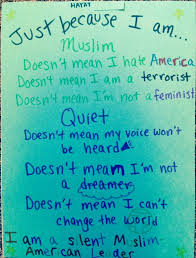 HAYAT
Just because I am...
Muslim
Doesn't mean I hate America
Doesn't mean I am a terrorist
Doesn't mean I'm not a feminist
Quiet
Doesn't mean my voice won't
be heard
Doesn't mean I'm not
a dreamer
Doesn't mean I can't
change the world
I am a silent Muslim-
American Leader